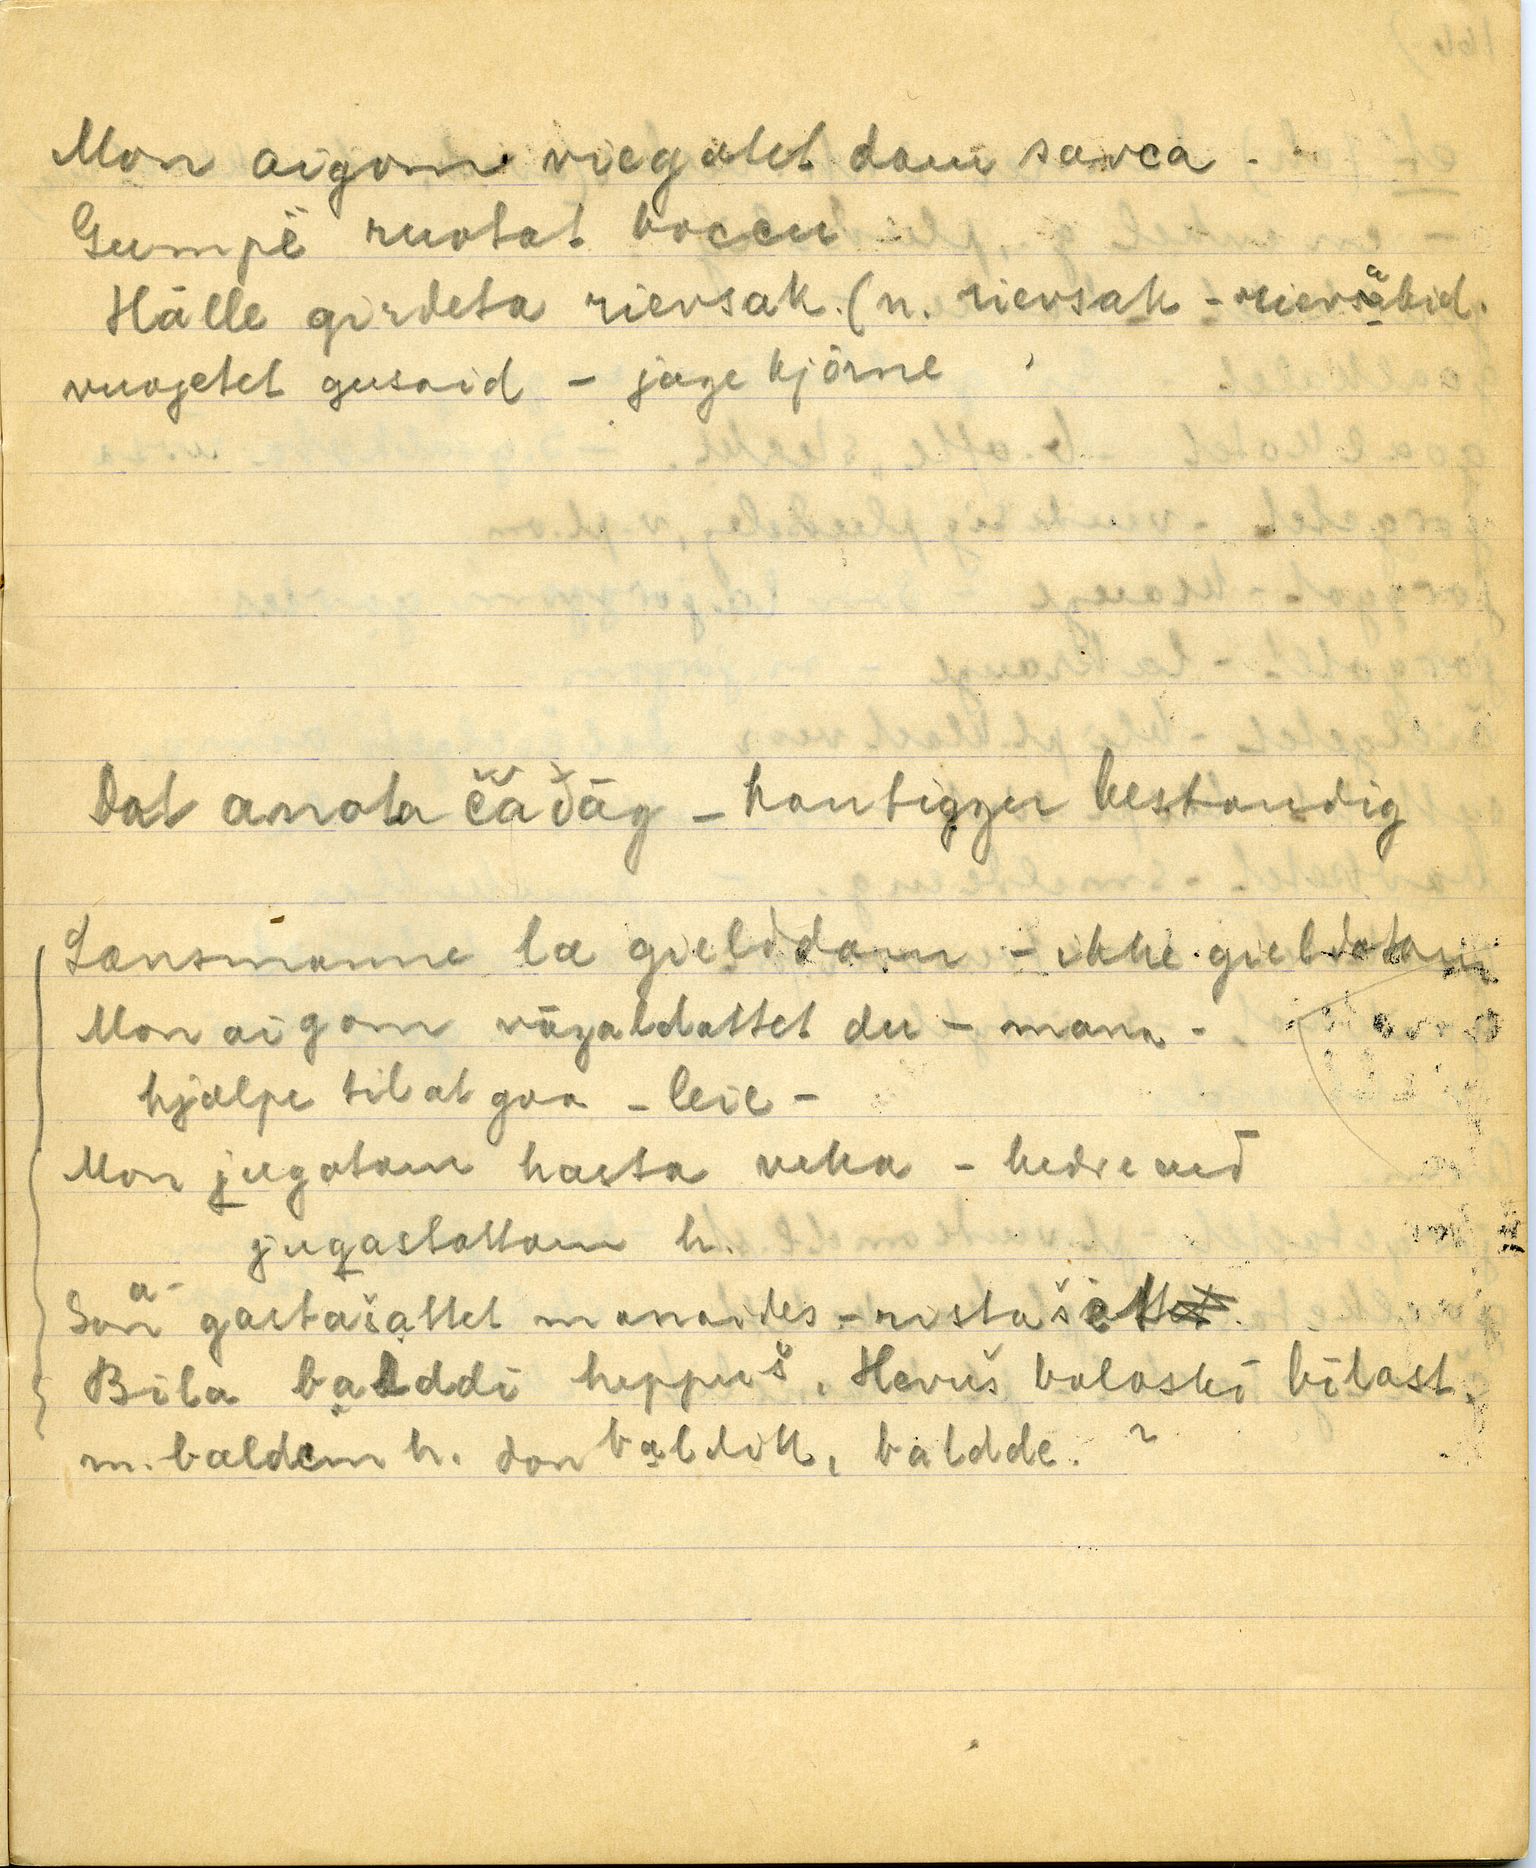 Mon aigom viegatet dam savca.
Gumpē ruotat boccu
Hālle girdeta rievsak. (n. rievsak - rievsäkid.
vuojetet gusaid - jage kjörne
Dat anota čađāg - han tigger bestandig
Lænsmanne læ gielddam - ikke gieldatam
Mon aigom vāzaldattet du - mana -
hjælpe til at gaa - leie -
Mon jugatam hæsta veka - bedre med
jugastattam h.
Son gastašattet manaides - ristašette
Bila balddi heppuš, Hevuš balaski bilast.
m. baldem h. don baldik, baldde.